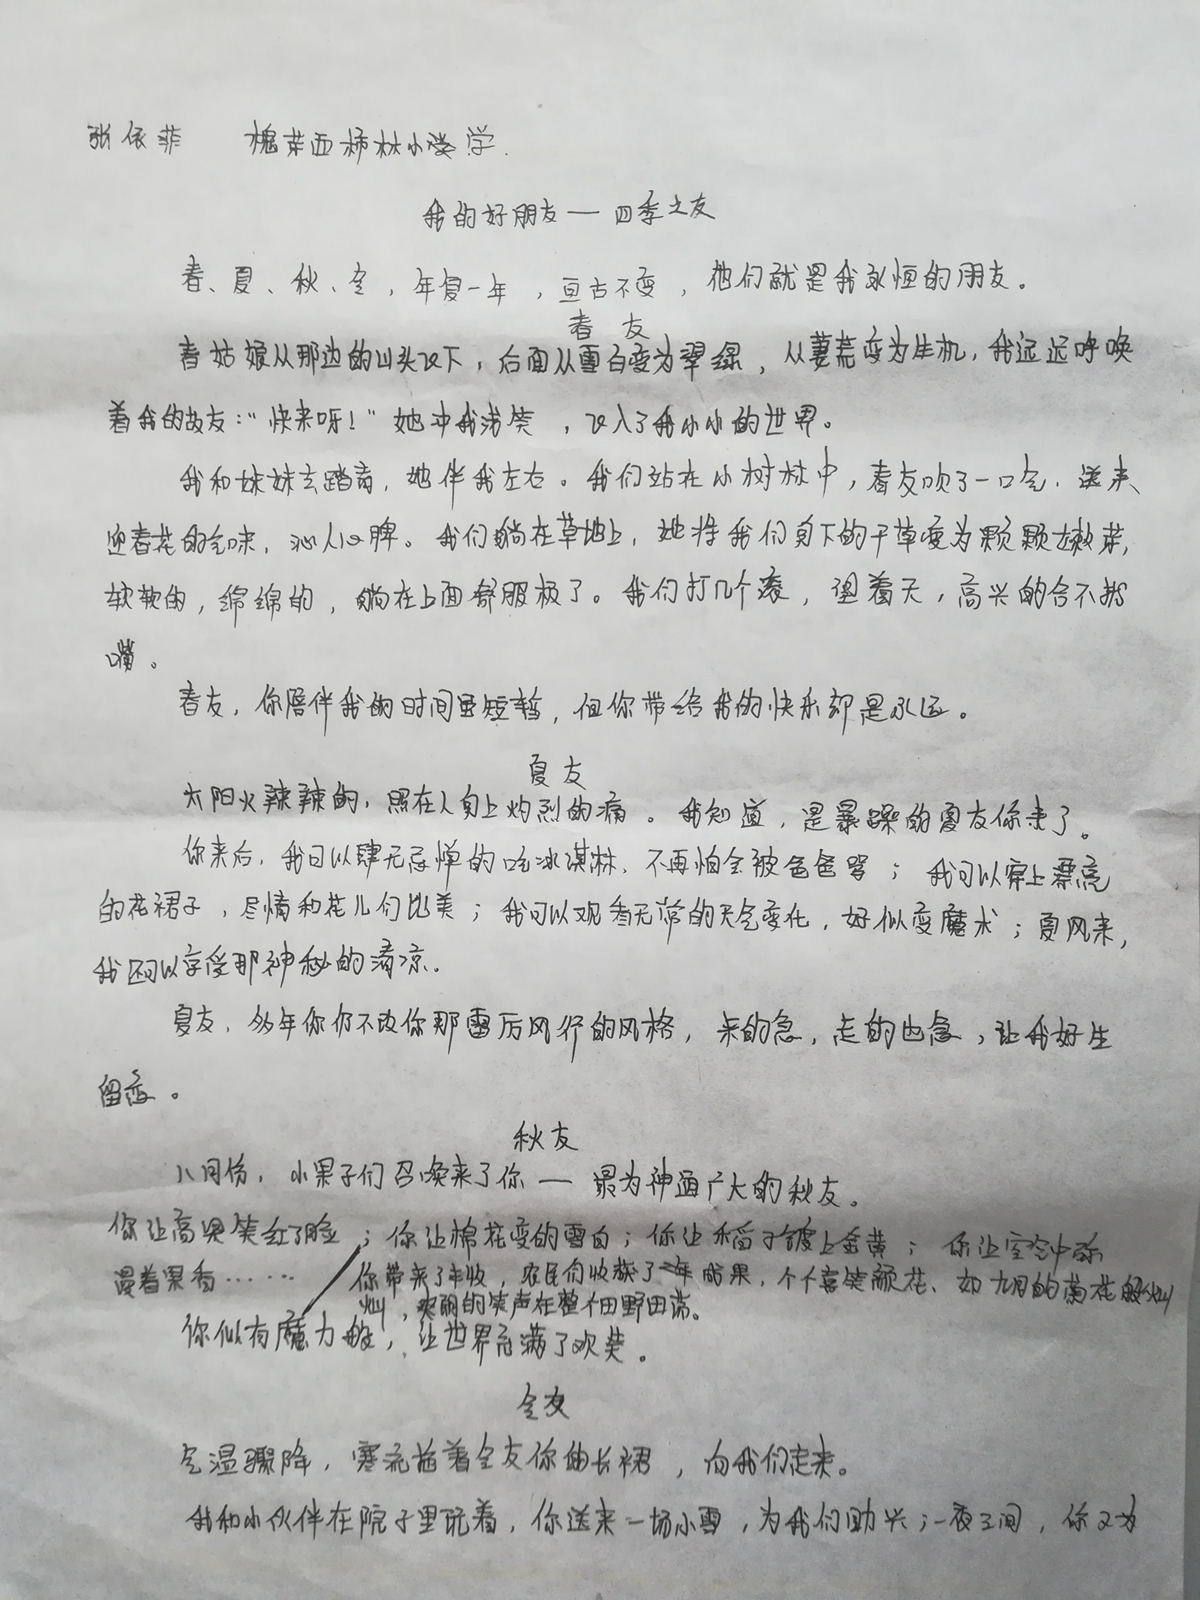 张依菲 槐芽西柿林小学
我的好朋友——四季之友
春、夏、秋、冬，年复一年，亘古不变，他们就是我永恒的朋友。
春友
春姑娘从那边的山头飞下，后面从雪白变为翠绿，从萋荒变为生机，我远远呼唤
着我的故友：“快来呀！”她冲我浅笑，飞入了我小小的世界。
我和妹妹去踏青，她伴我左右。我们站在小树林中，春友吹了一口气，送来
迎春花的气味，沁人心脾。我们躺在草地上，她将我们身下的干草变为颗颗嫩芽，
软软的，绵绵的，躺在上面舒服极了。我们打几个滚，望着天，高兴的合不拢
嘴。
春友，你陪伴我的时间虽短暂，但你带给我的快乐却是永远。
夏友
太阳火辣辣的，照在人身上灼烈的痛。我知道，是暴躁的夏友你来了。
你来后，我可以肆无忌惮的吃冰淇淋，不再怕会被爸爸骂；我可以穿上漂亮
的花裙子，尽情和花儿们比美；我可以观看无常的天气变化，好似变魔术；夏风来，
我还可以享受那神秘的清凉.
夏友，多年你仍不改你那雷厉风行的风格，来的急，走的也急，让我好生
留恋。
秋友
八月份，小果子们召唤来了你——最为神通广大的秋友。
你让高粱笑红了脸；你让棉花变的雪白；你让稻子镀上金黄；你让空气中弥
漫着果香…… 你带来了丰收，农民们收获了一年成果，个个喜笑颜花、如九月的菊花般灿
灿，爽朗的笑声在整个田野回荡。
你似有魔力般，让世界充满了欢笑。
冬友
气温骤降，寒流拖着冬友你的长裙，向我们走来。
我和小伙伴在院子里玩着，你送来一场小雪，为我们助兴；一夜之间，你又为